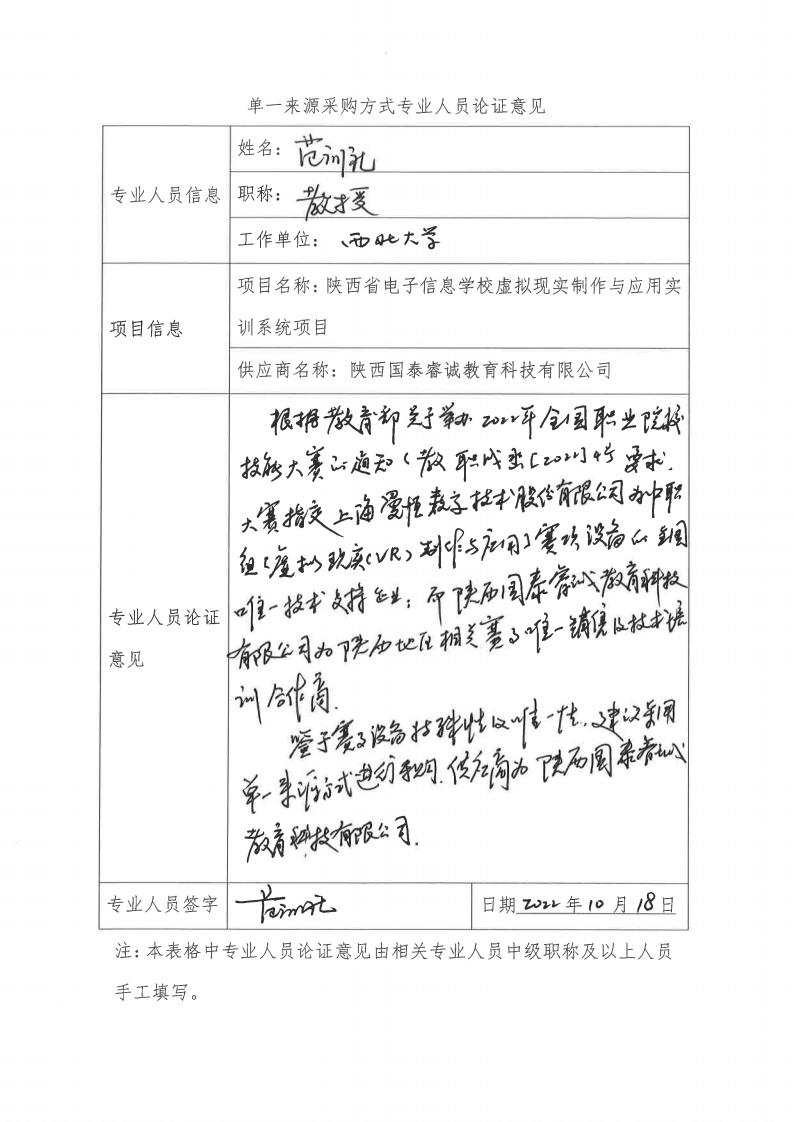 单一来源采购方式专业人员论证意见
专业人员信息
姓名：范训礼
职称：教授
工作单位：西北大学
项目信息
项目名称：陕西省电子信息学校虚拟现实制作与应用实
训系统项目
供应商名称：陕西国泰睿诚教育科技有限公司
专业人员论证
意见
根据教育部关于举办2022年全国职业院校
技能大赛的通知（教职成函[2022]4号要求，
大赛指定上海曼恒数字技术股份有限公司为中职
组《虚拟现实(VR)制作与应用》赛项设备的全国
唯一技术支持企业；而陕西国泰睿诚教育科技
有限公司为陕西地区相关赛项唯一销售及技术培
训合作商.
鉴于赛项设备特殊性及唯一性，建议采用
单一来源方式进行采购.供应商为陕西国泰睿诚
教育科技有限公司.
专业人员签字 范训礼
日期 2022年10月18日
注：本表格中专业人员论证意见由相关专业人员中级职称及以上人员
手工填写。